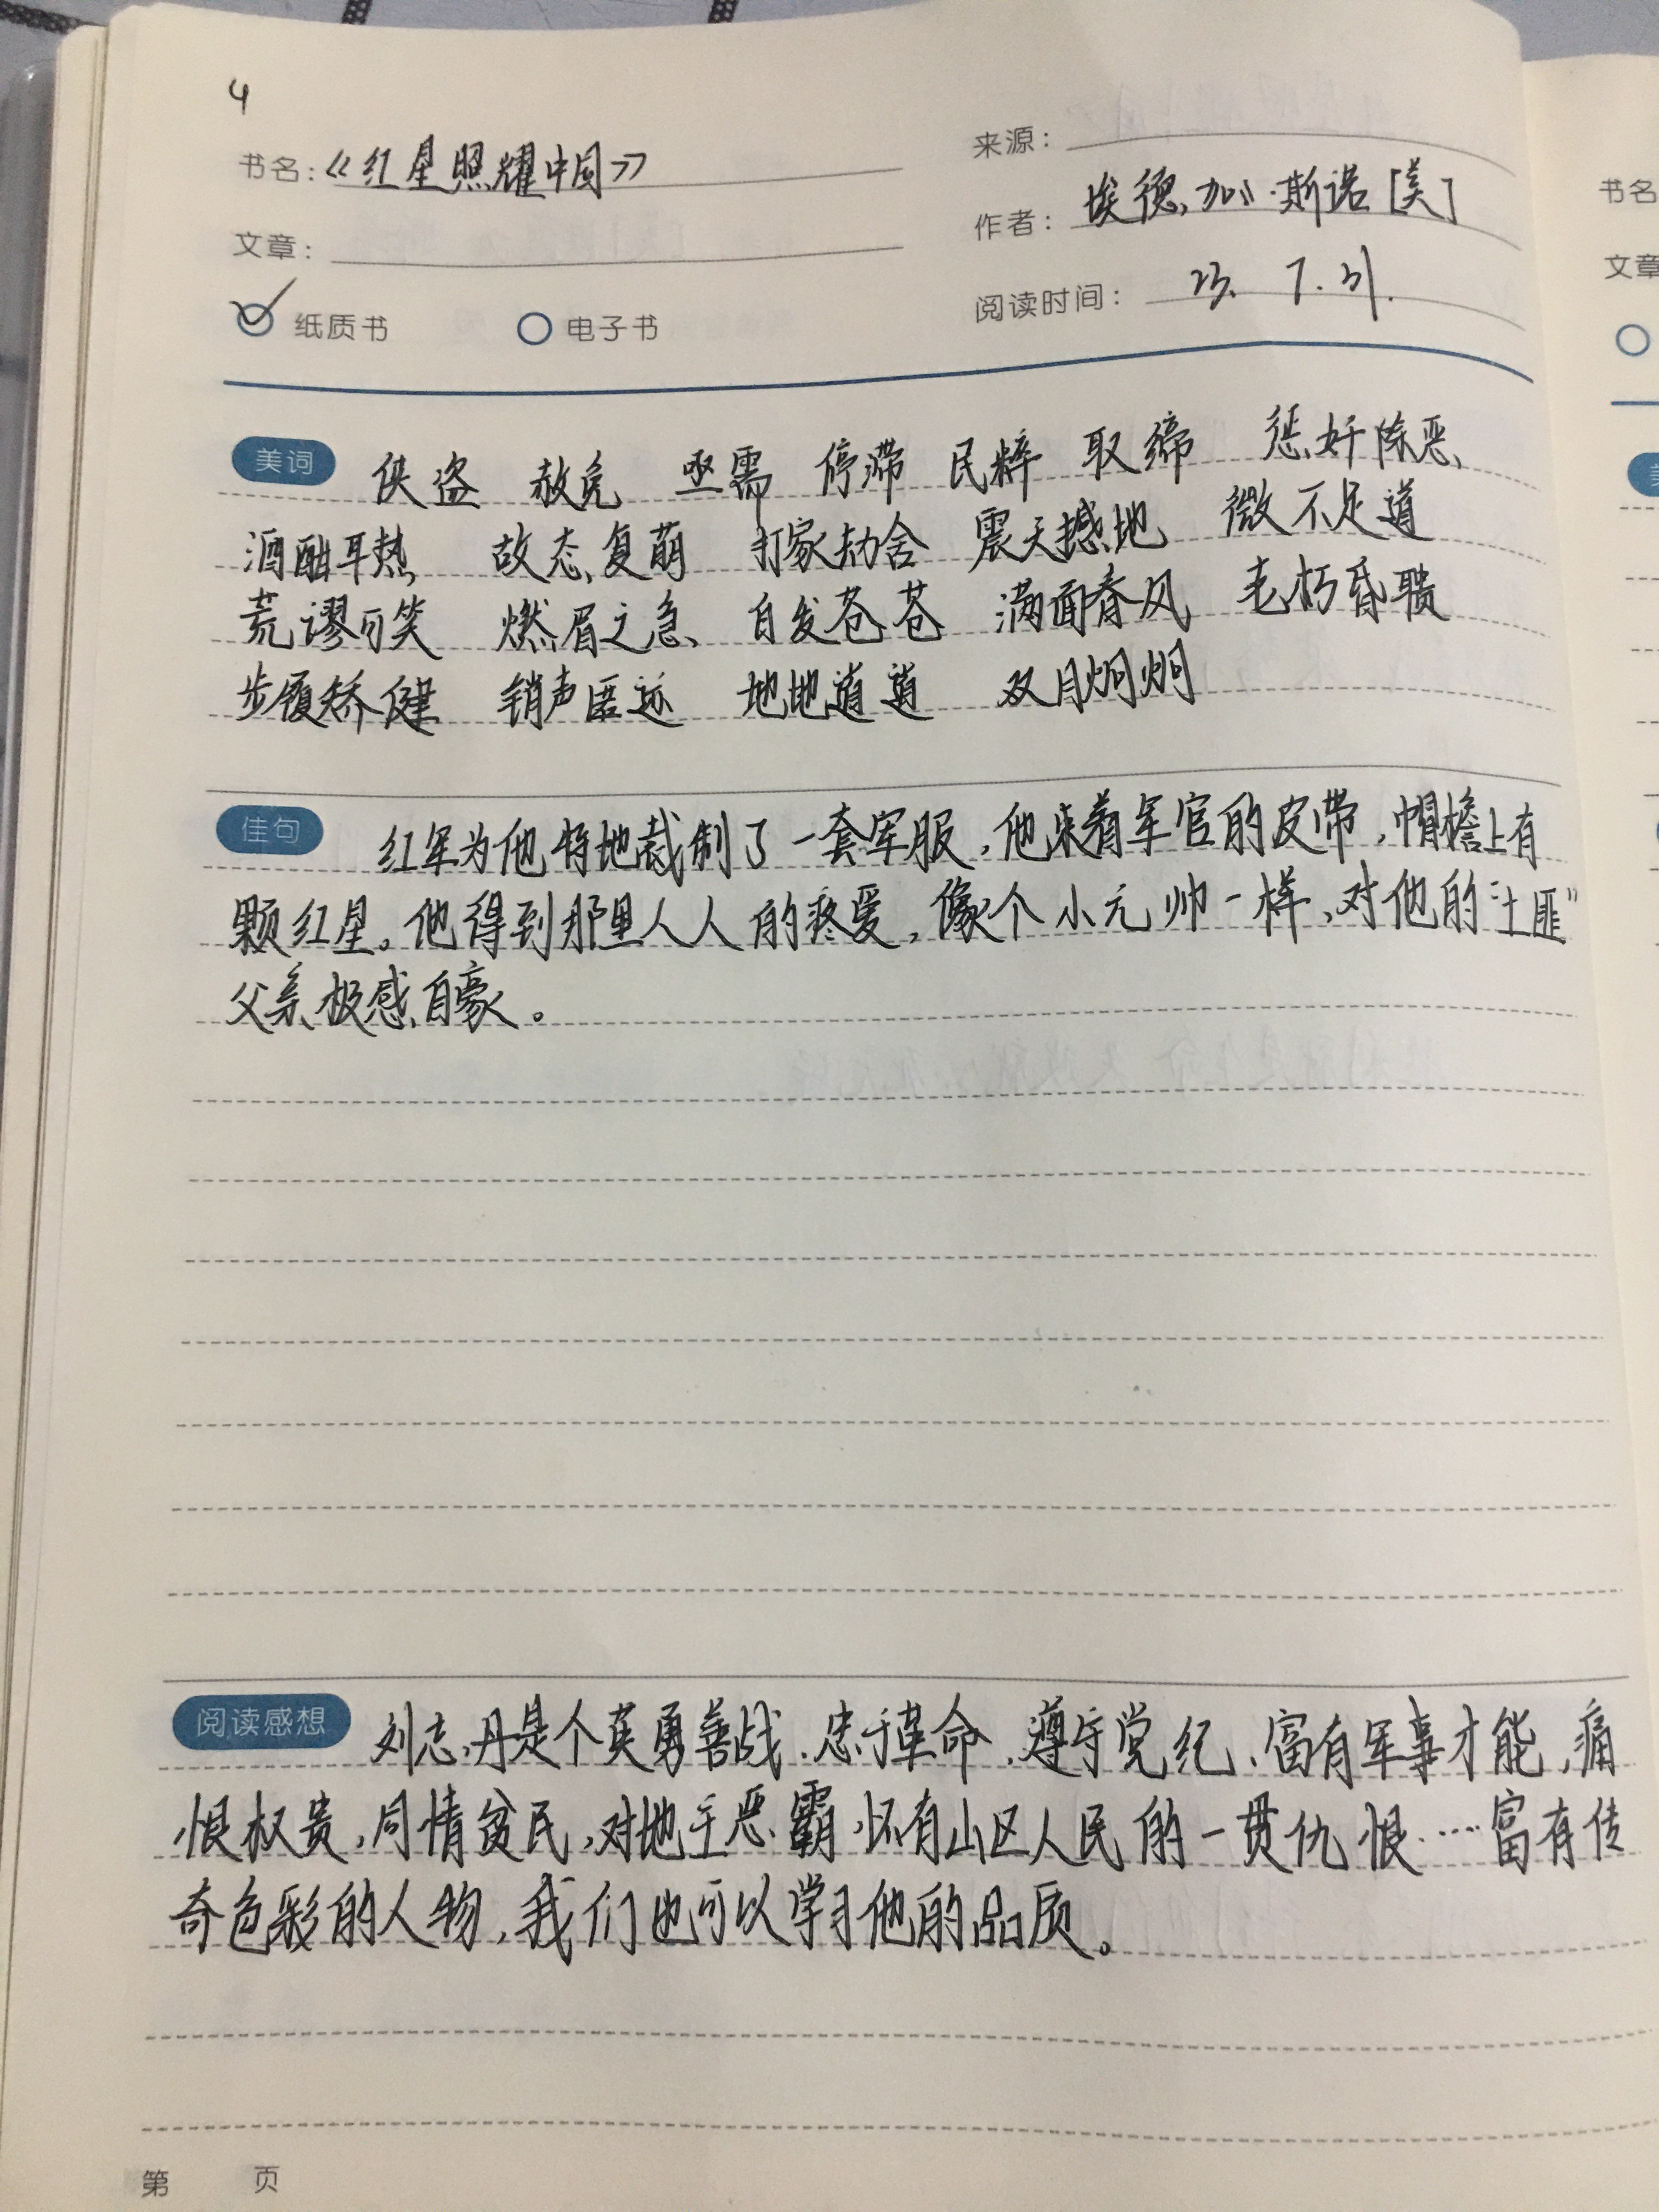 4
书名：《红星照耀中国》
来源：
作者：埃德加·斯诺[美]
文章：
阅读时间：23.7.31.
纸质书 电子书
美词 侠盗 赦免 亟需 停滞 民粹 取缔 惩奸除恶
酒酣耳热 故态复萌 打家劫舍 震天撼地 微不足道
荒谬可笑 燃眉之急 白发苍苍 满面春风 老朽昏聩
步履矫健 销声匿迹 地地道道 双目炯炯
佳句 红军为他特地裁制了一套军服，他束着军官的皮带，帽檐上有
颗红星。他得到那里人人的疼爱，像个小元帅一样，对他的“土匪”
父亲极感自豪。
阅读感想 刘志丹是个英勇善战、忠于革命、遵守党纪、富有军事才能，痛
恨权贵，同情贫民，对地主恶霸怀有山区人民的一贯仇恨……富有传
奇色彩的人物，我们也可以学习他的品质。
第 页
书名
文章